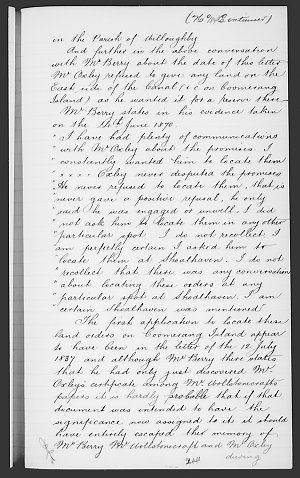 (H M E continued)
in the Parish of Willoughby
And further in the above conversation
with Mr Berry about the date of this letter
Mr Oxley refused to give any land on the
East side of the Canal (i e on Coomerong
Island) as he wanted it for a reserve there
Mr Berry states in his evidence taken
on the 14th June 1870
"I have had plenty of communications
"with Mr Oxley about the promises I
"constantly wanted him to locate them
"x x x x Oxley never disputed the promises
"He never refused to locate them, that is
"never gave a positive refusal, he only
"said he was engaged or unwell. I did
"not ask him to locate them in any other
"particular spot. I do not recollect. I
"am perfectly certain I asked him to
"locate them at Shoalhaven. I do not
"recollect that there was any conversation
"about locating these orders at any
"particular spot at Shoalhaven. I am
"certain Shoalhaven was mentioned"
The first application to locate these
land orders on Coomerong Island appear
to have been in the letter of the 12 July
1837 and although Mr Berry there states
that he had only just discovered Mr
Oxley's certificate among Mr Wollstonecraft's
papers it is hardly probable that if that
document was intended to have the
significance now assigned to it it should
have entirely escaped the memory of
Mr Berry Mr Wollstonecraft and Mr Oxley
during